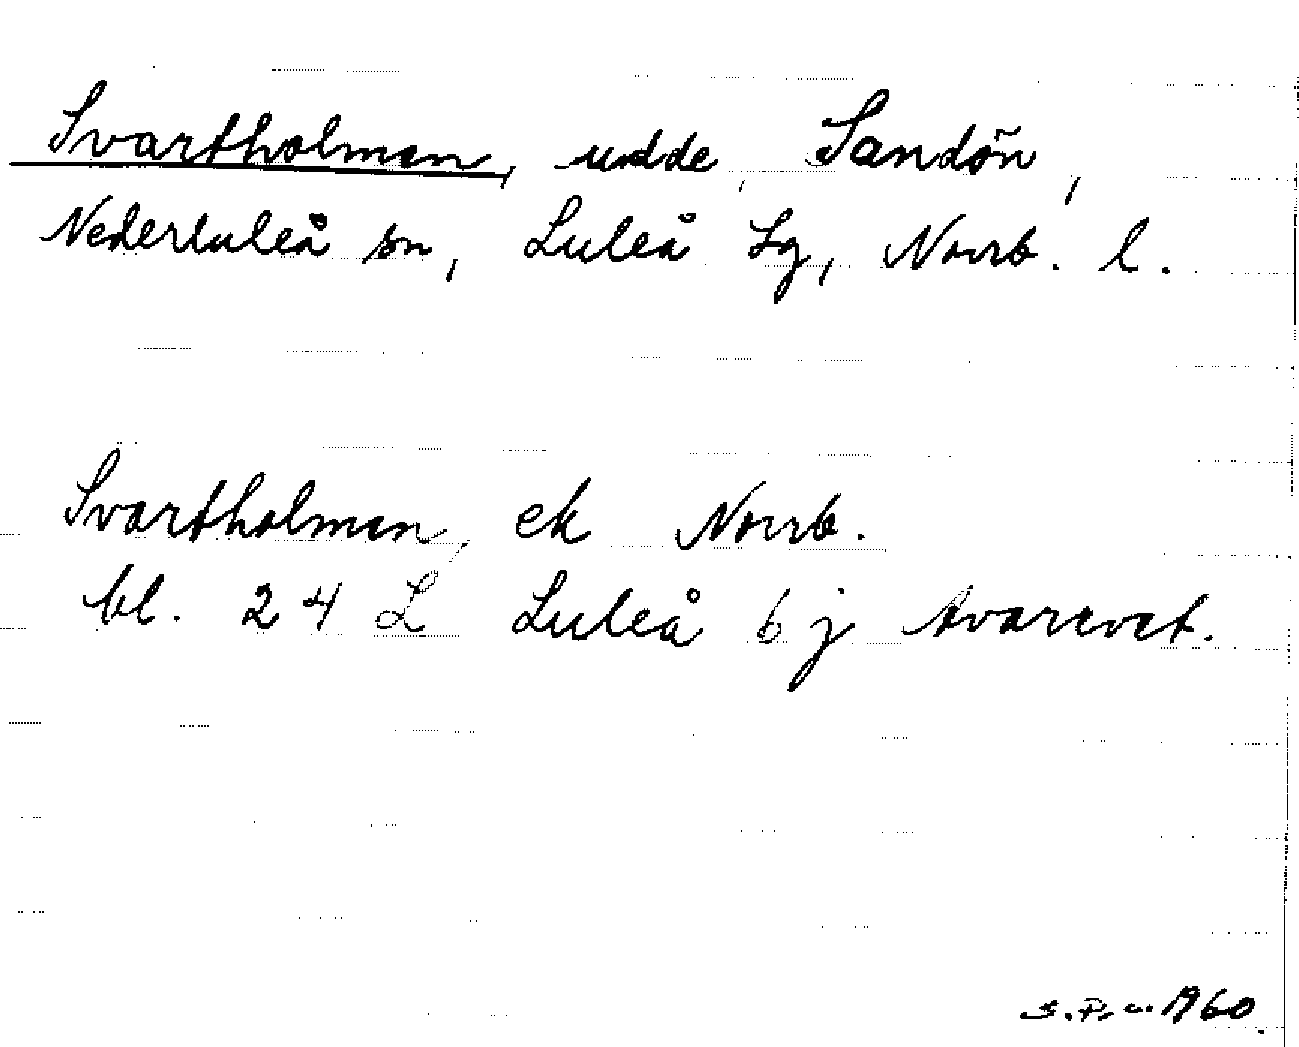 Svartholmen, udde, Sandön,
Nederluleå sn, Luleå Lg, Norrb. l.
Svartholmen, ek Norrb.
bl. 24 L Luleå 6 j
1960